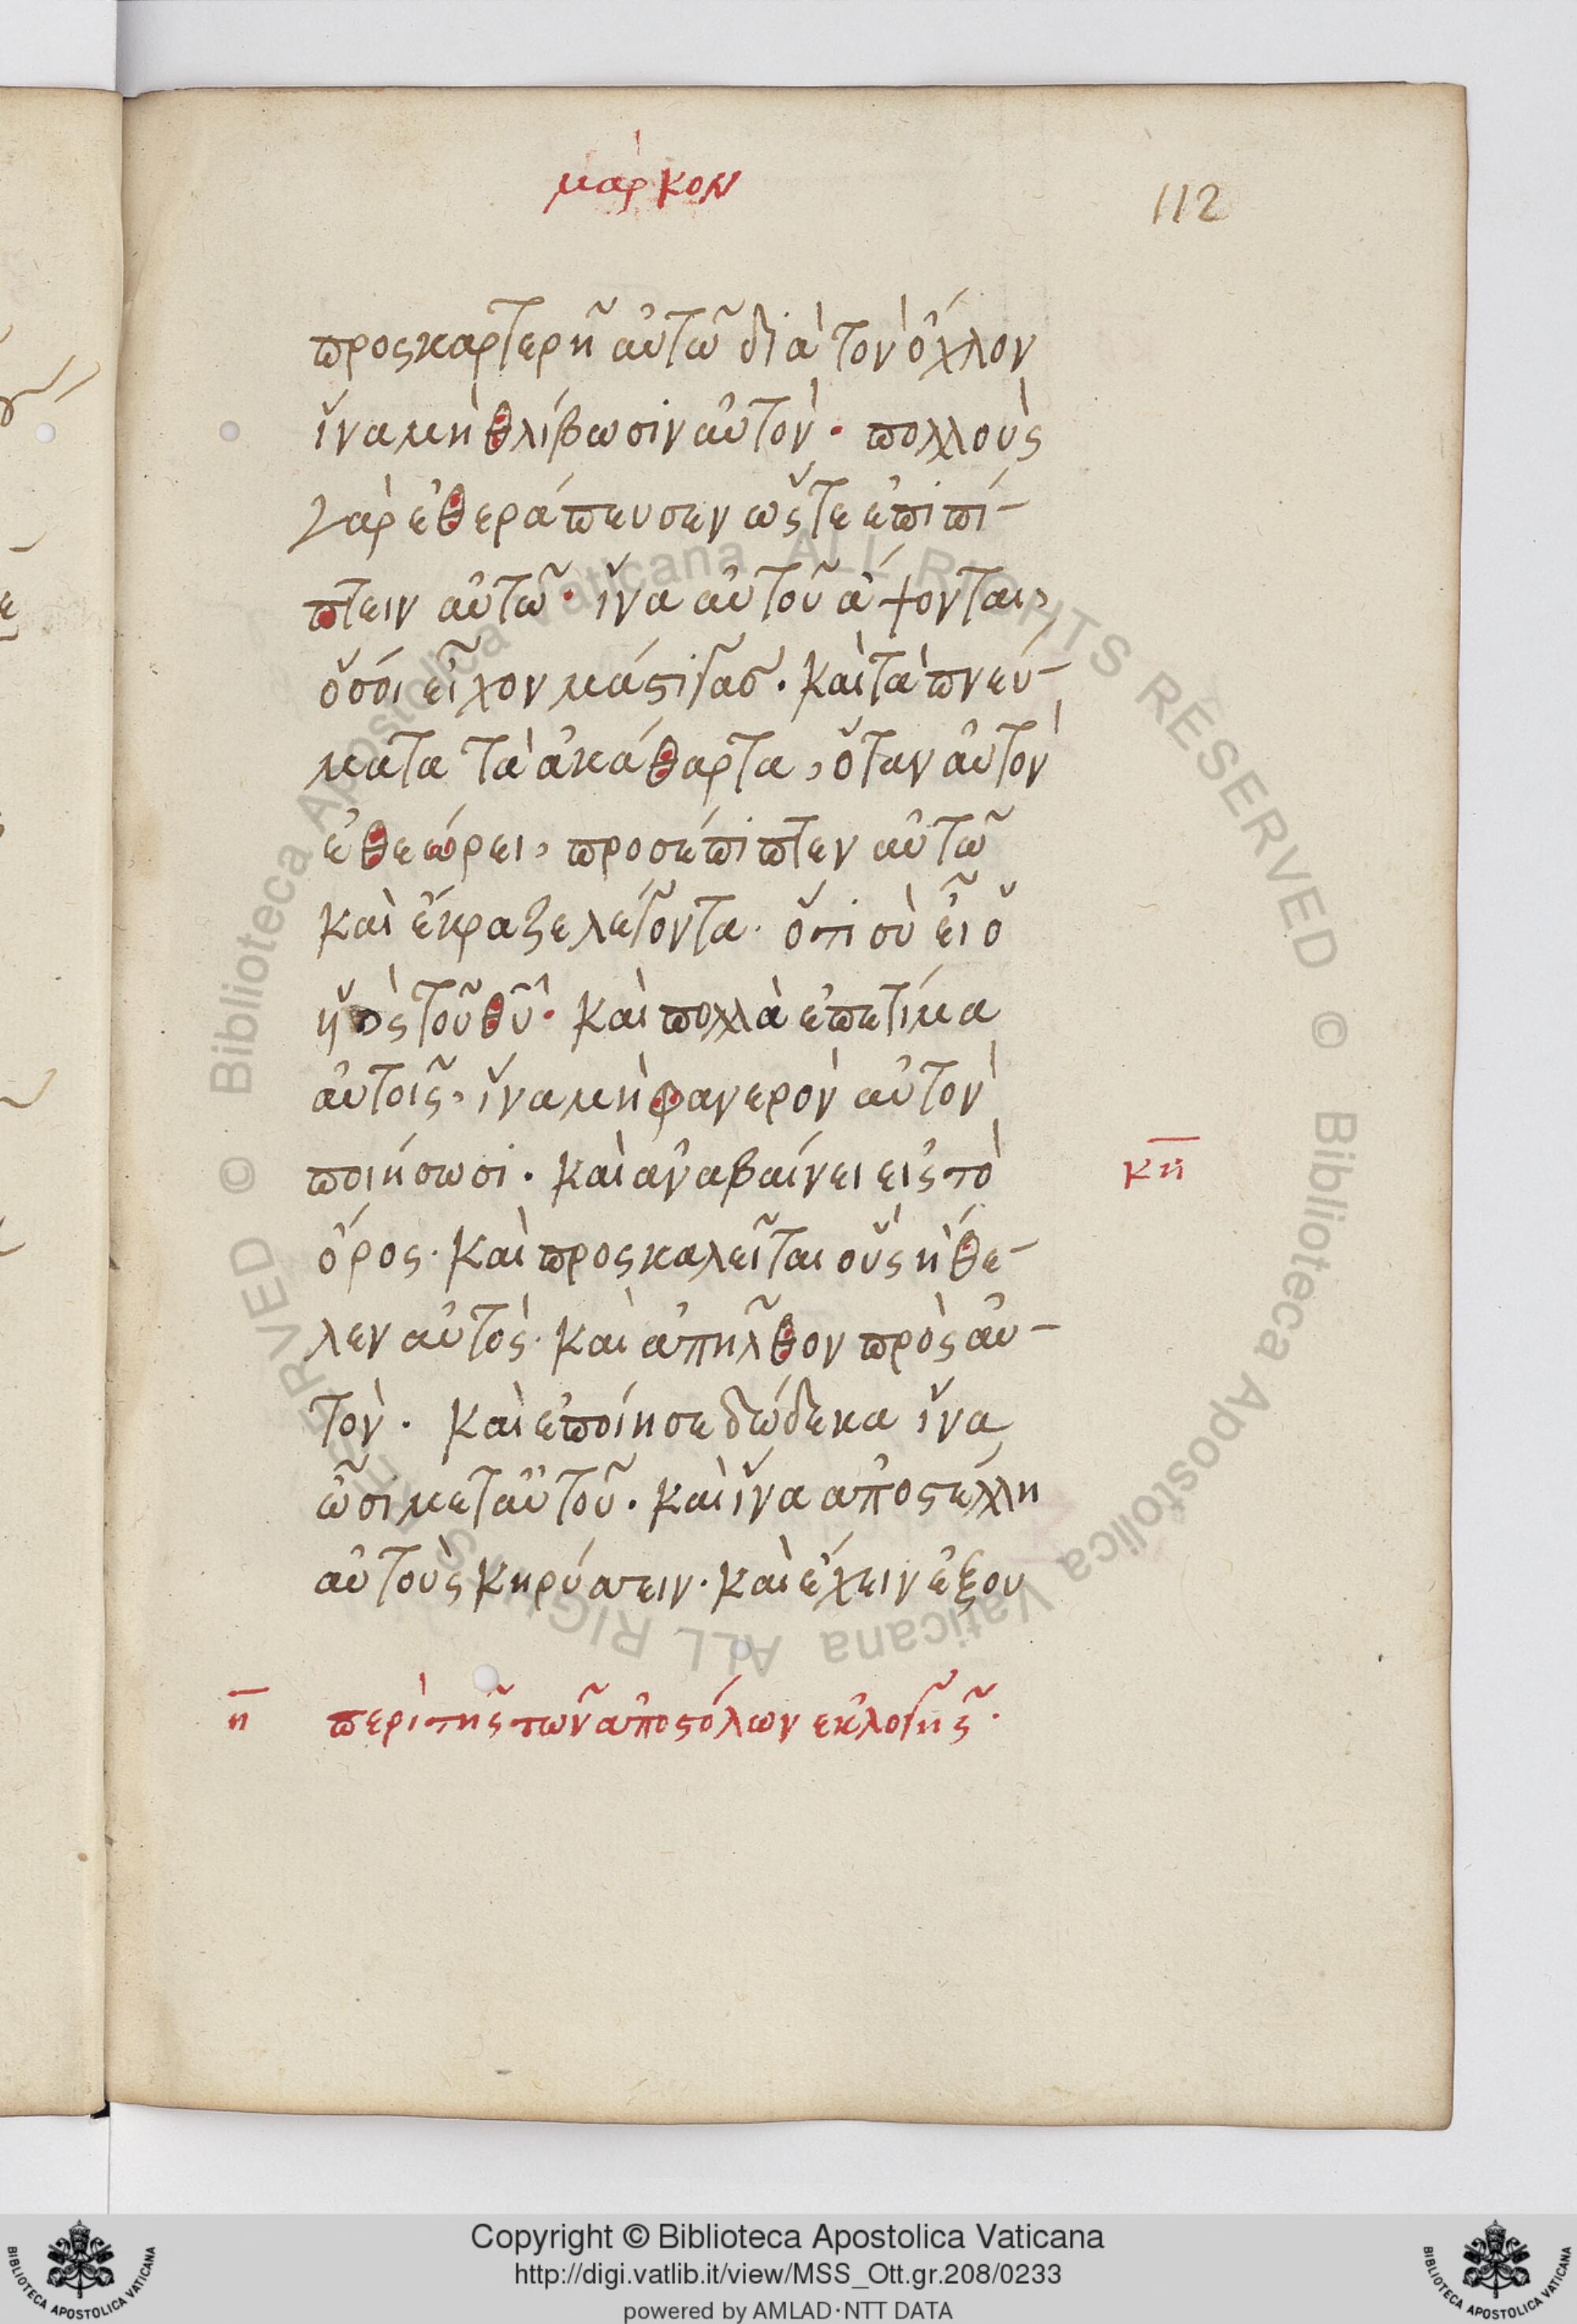 μάρκον
112
προσκαρτερῆ αὐτῶ διὰ τὸν ὄχλον
ἵνα μὴ θλίβωσιν αὐτόν · πολλοὺς
γὰρ ἐθεράπευσεν ὥστε ἐπιπί-
πτειν αὐτῶ · ἵνα αὐτοῦ ἅψονται,
ὅσοι εἶχον μάστιγασ · καὶ τὰ πνεύ-
ματα τὰ ἀκάθαρτα, ὅταν αὐτὸν
ἐθεώρει, προσέπιπτεν αὐτῶ
καὶ ἔκραζε λέγοντα · ὅτι σὺ εἶ ὁ
ὑὸς τοῦ θῦ · καὶ πολλὰ ἐπετίμα
αὐτοῖς, ἵνα μὴ φανερὸν αὐτὸν
ποιήσωσι · καὶ ἀναβαίνει εἰς τὸ
κη
ὄρος · καὶ προσκαλεῖται οὓς ἤθε-
λεν αὐτός · καὶ ἀπῆλθον πρὸς αὐ-
τόν · καὶ ἐποίησε δώδεκα ἵνα
ὦσι μετ αὐτοῦ · καὶ ἵνα ἀποστέλλη
αὐτοὺς κηρύττειν · καὶ ἔχειν ἐξου
η περὶ τῆς τῶν ἀποστόλων ἐκλογῆς ·
Copyright © Biblioteca Apostolica Vaticana
http://digi.vatlib.it/view/MSS_Ott.gr.208/0233
powered by AMLAD·NTT DATA